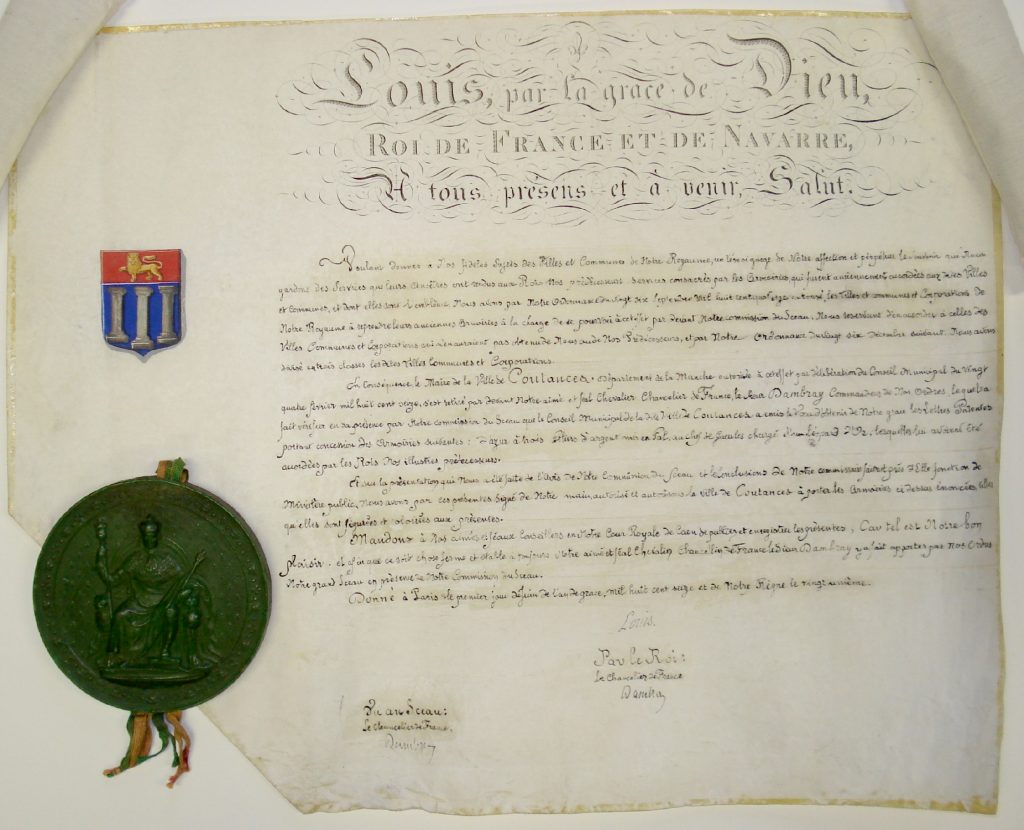 Louis, par la grace de Dieu,
ROI DE FRANCE ET DE NAVARRE,
A tous présens et à venir, Salut.
Voulant donner à Nos fidèles Sujets des Villes et Communes de Notre Royaume, un témoignage de Notre affection et perpétuer le souvenir que Nous
gardons des Services que leurs Ancêtres ont rendus aux Rois Nos prédécesseurs, services consacrés par les Armoiries, qui furent anciennement accordées aux dites Villes
et Communes, et dont elles sont l'emblême, Nous avons par Notre Ordonnance du vingt six Septembre Mil huit cent quatorze autorisé les Villes et communes et Corporations de
Notre Royaume à reprendre leurs anciennes Armoiries à la charge de se pourvoir à cet effet par devant Notre commission du Sceau; Nous réservant d'en accorder à celles des
Villes Communes et Corporations qui n'en auraient pas obtenu de Nous ou de Nos Prédécesseurs, et par Notre Ordonnance du vingt six Décembre suivant, Nous avons
divisé en trois classes les dites Villes Communes et Corporations.
En conséquence, le Maire de la Ville de Coutances, département de la Manche autorisé à cet effet par délibération du Conseil Municipal du vingt
quatre février mil huit cent seize, s'est retiré par devant Notre aimé et féal Chevalier Chancelier de France, le Sieur Dambray Commandeur de Nos Ordres, lequel a
fait vérifier en sa présence par Notre commission du Sceau que le Conseil Municipal de la dite Ville de Coutances a émis le vœu d'obtenir de Notre grace des Lettres Patentes
portant concession des Armoiries suivantes: d'azur à trois piliers d'argent mis en Pal, au chef de gueules chargé d'un Léopard d'Or, lesquelles lui avaient été
accordées par les Rois Nos illustres prédécesseurs.
Et sur la présentation qui Nous a été faite de l'Avis de Notre Commission du Sceau et des Conclusions de Notre commissaire faisant près d'Elle fonction de
Ministère public, Nous avons par ces présentes signé de Notre main, autorisé et autorisons la ville de Coutances à porter les Armoiries ci dessus énoncées, telles
qu'elles sont figurées et coloriées aux présentes.
Mandons à Nos aimés et féaux Conseillers en Notre Cour Royale de Caen de publier et enregistrer les présentes; Car tel est Notre bon
plaisir. et afin que ce soit chose ferme et stable à toujours Notre aimé et féal Chevalier Chancelier de France le Sieur Dambray y a fait apposer par Nos Ordres
Notre grand Sceau en présence de Notre Commission du Sceau.
Donné à Paris le premier jour de Juin de l'an de grace, mil huit cent seize et de Notre Règne le vingt unième.
Louis.
Par le Roi:
Le Chancelier de France
Dambray
Vu au Sceau:
Le Chancelier de France,
Dambray